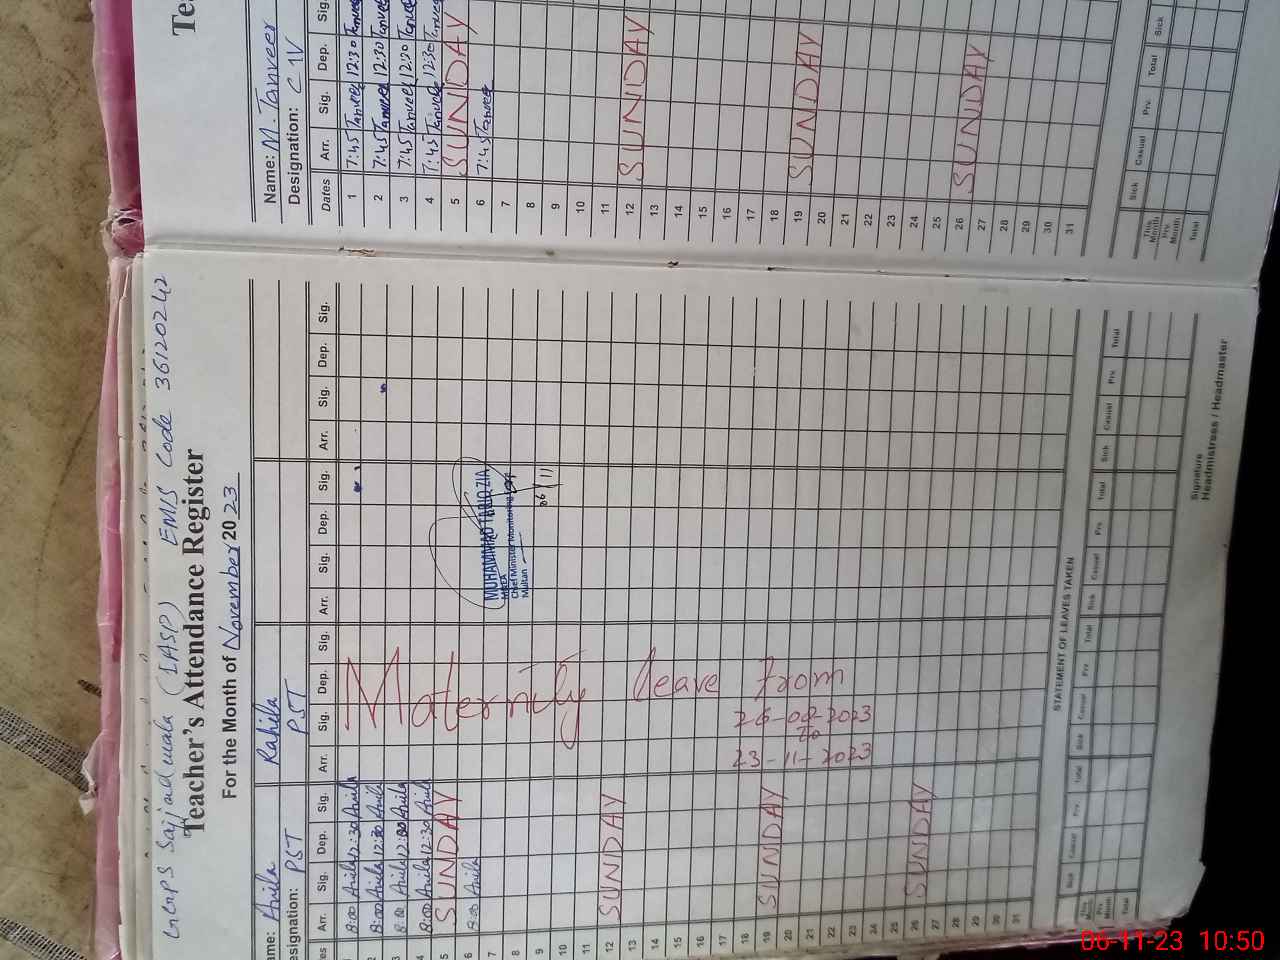 GGPS Sajjadwala (IASP) EMIS Code 36120242
Teacher's Attendance Register
For the Month of November 2023
ame: Anila Rahila
esignation: PST PST
es Arr. Sig. Dep. Sig. Arr. Sig. Dep. Sig. Arr. Sig. Dep. Sig. Arr. Sig. Dep. Sig.
1 8:00 Anila 12:30 Anila
2 8:00 Anila 12:30 Anila
3 8:00 Anila 12:30 Anila
4 8:00 Anila 12:30 Anila
5 SUNDAY
6 8:00 Anila
7
8
9
10
11
12 SUNDAY
13
14
15
16
17
18
19 SUNDAY
20
21
22
23
24
25
26 SUNDAY
27
28
29
30
31
Maternity leave From
26-08-2023
to
23-11-2023
MUHAMMAD TARIQ ZIA
MEA
Chief Minister Monitoring
Multan
06/11
STATEMENT OF LEAVES TAKEN
Sick Casual Prv. Total Sick Casual Prv. Total Sick Casual Prv. Total Sick Casual Prv. Total
This Month
Prv. Month
Total
Signature
Headmistress / Headmaster
Te
Name: M. Tanveer
Designation: C IV
Dates Arr. Sig. Dep. Sig.
1 7:45 Tanveer 12:30 Tanveer
2 7:45 Tanveer 12:30 Tanveer
3 7:45 Tanveer 12:30 Tanveer
4 7:45 Tanveer 12:30 Tanveer
5 SUNDAY
6 7:45 Tanveer
7
8
9
10
11
12 SUNDAY
13
14
15
16
17
18
19 SUNDAY
20
21
22
23
24
25
26 SUNDAY
27
28
29
30
31
Sick Casual Prv. Total Sick
This Month
Prv. Month
Total
06-11-23 10:50